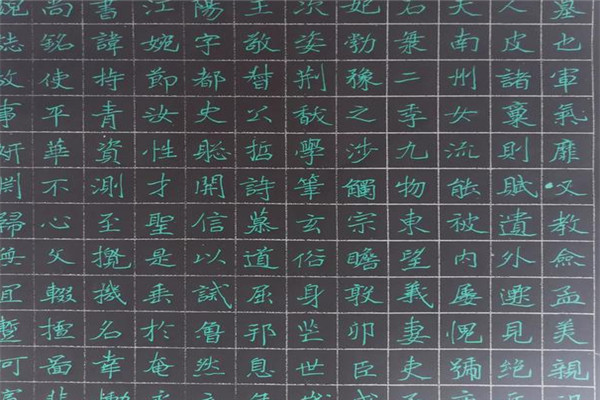 墓也軍氣靡又教僉孟美親
人皮諸稟則賦遺外遷見絕
夫南州女流能被內屢愧號
石兼二季九物東望義妻吏
妃勃豫之涉觸宗瞻敦卯臣
次姿荊猷學筆玄俗身世
王敬督公哲詩慕道居邦息
陽字都史聡開信以試魯然
江婉節汝性才聖是垂於奄
書諱持青資測至攬機名幸
尚銘使平華不心文輟擅圖
誌故事妍淵歸無宜暫可